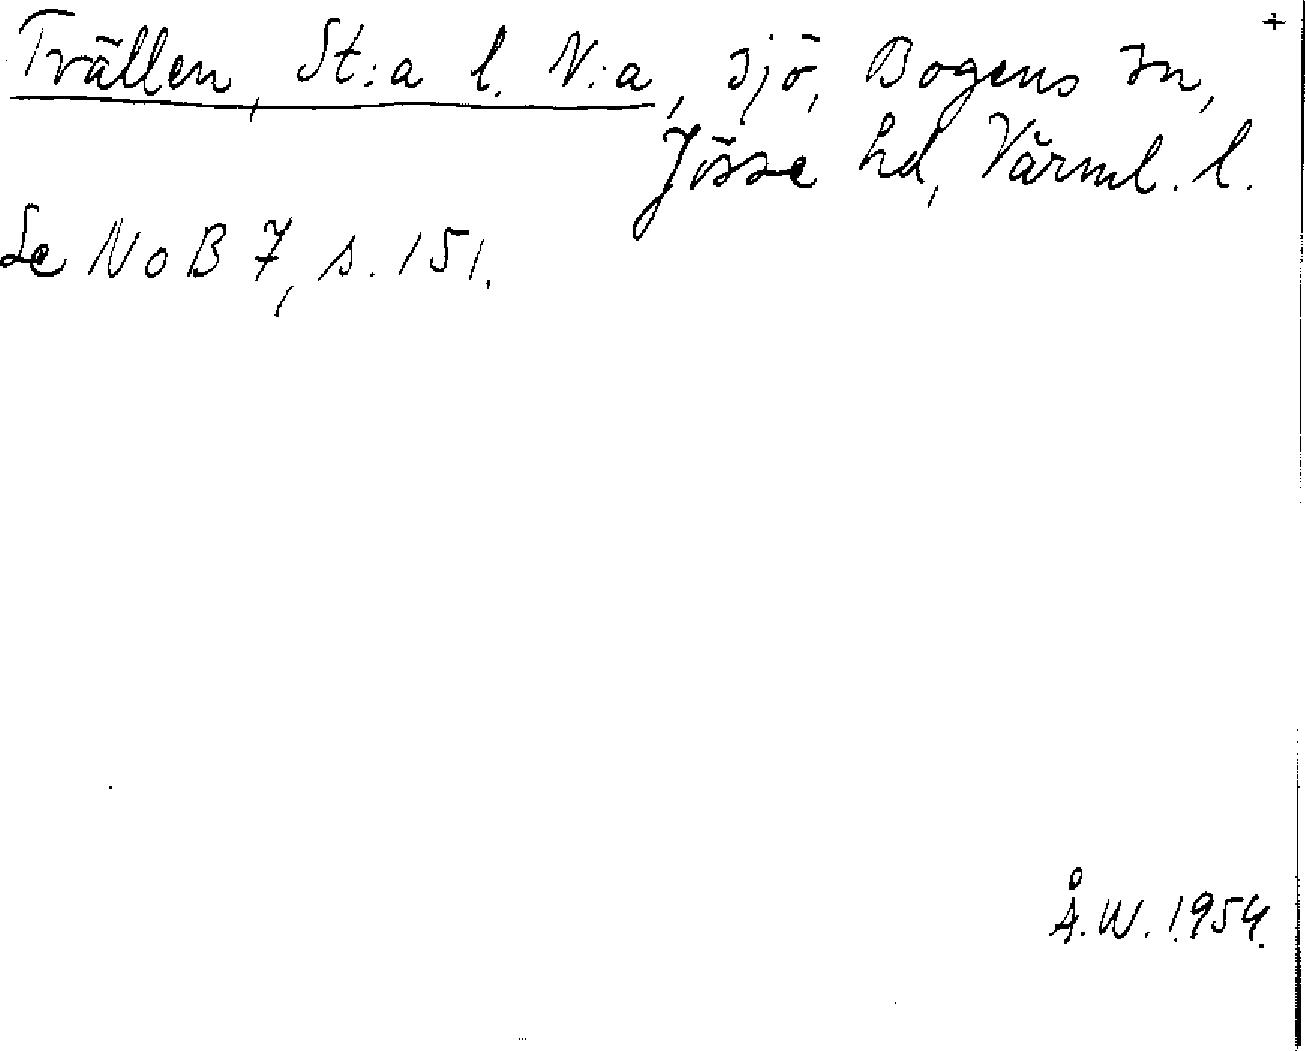 +
Trällen, St:a l. N:a, sjö, Bogens sn,
Jösse hd, Värml. l.
Se NoB 7, s. 151.
Å.W. 1954.